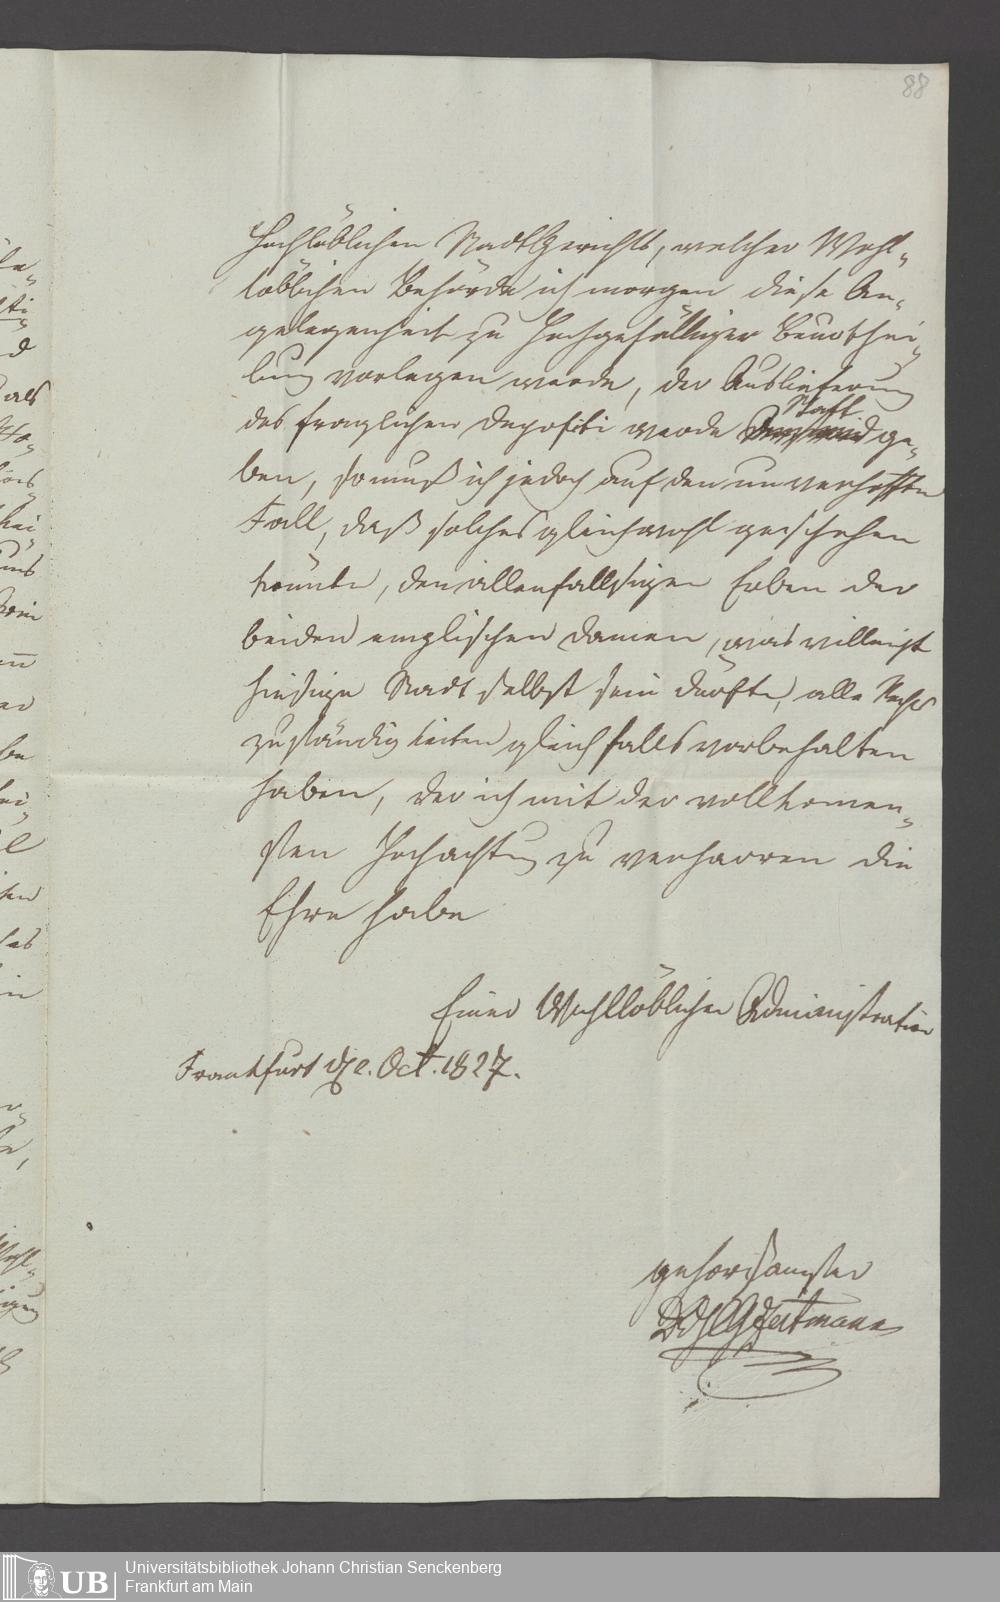 88
Hochlöblichen StadtGerichts, welcher Wohl-
löblichen Behörde ich morgen diese An-
gelegenheit zu Hochgefälliger Beurthei-
lung vorlegen werde, der Auslieferung
des fraglichen Depositi werde Statt ge-
ben, so muß ich jedoch auf den unverhofften
Fall, daß solches gleichwohl geschehen
könnte, den allenfallsigen Erben der
beiden englischen Damen, was villeicht
hiesige Stadt selbst sein dürfte, alle Rechts
zuständigkeiten gleichfalls vorbehalten
haben, der ich mit der vollkomen-
sten Hochachtung zu verharren die
Ehre habe
Einer Wohllöblichen Administration
Frankfurt d 2. Oct. 1827.
gehorsamster
Universitätsbibliothek Johann Christian Senckenberg
UB Frankfurt am Main